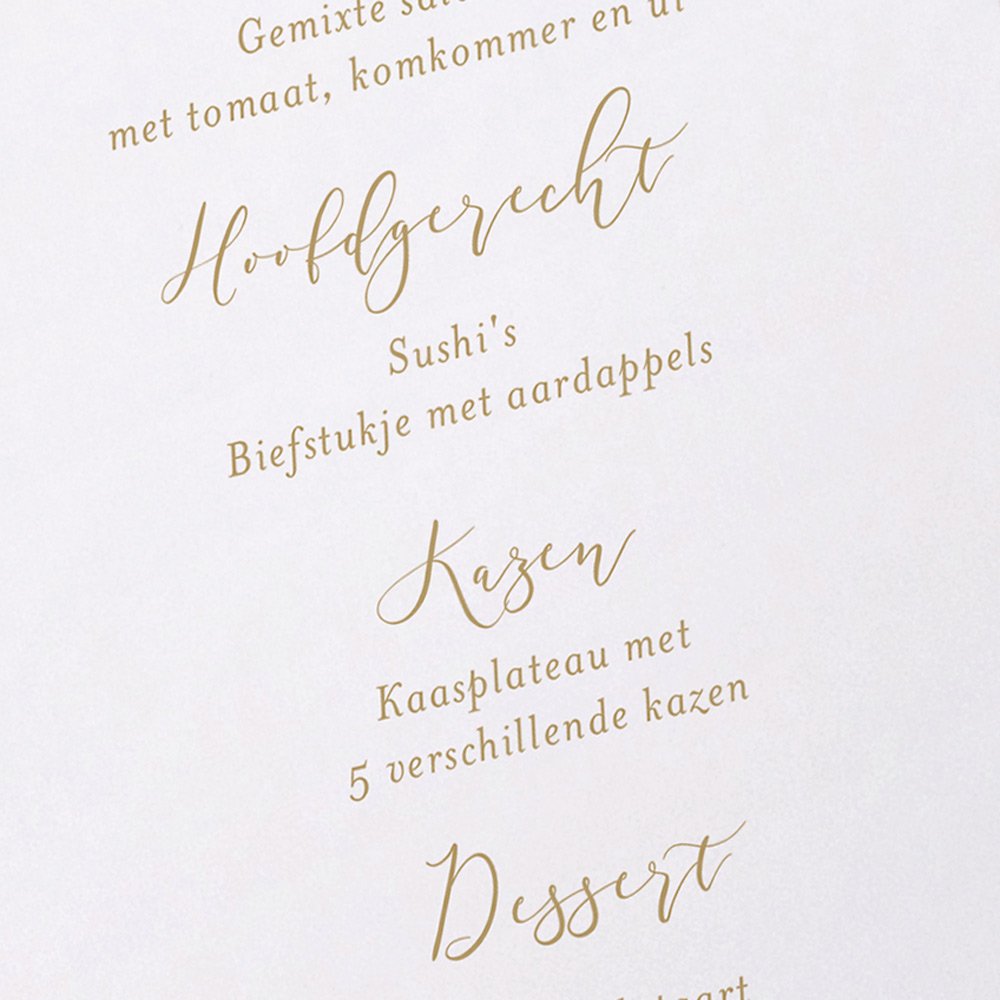 Gemixte
met tomaat, komkommer en
Hoofdgerecht
Sushi's
Biefstukje met aardappels
Kazen
Kaasplateau met
5 verschillende kazen
Dessert